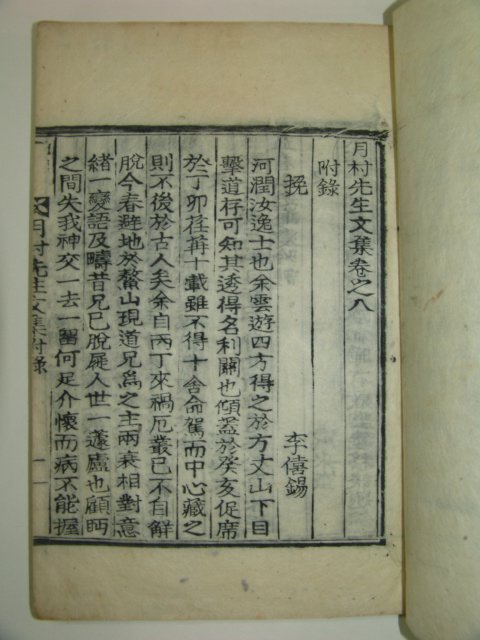 月村先生文集卷之八
附錄
挽 李僖錫
河潤汝逸士也余雲遊四方得之於方丈山下目
擊道存可知其透得名利關也傾蓋於癸亥促席
於丁卯荏苒十載雖不得十舍命駕而中心藏之
則不後於古人矣余自丙丁來禍厄叢己不自解
脫今春避地於鰲山現道兄爲之主兩衰相對意
緖一變語及疇昔兄已脫屣人世一蘧廬也顧眄
之間失我神交一去一留何足介懷而病不能握
月村先生文集附錄 一